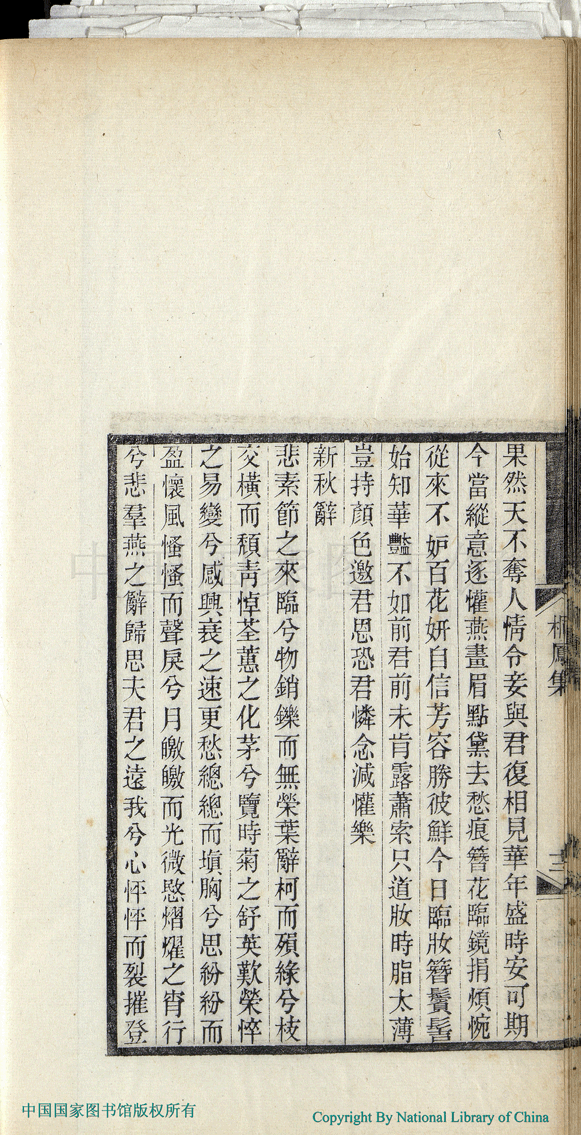 果然天不奪人情令妾與君復相見華年盛時安可期
今當縱意逐懽燕畫眉點黛去愁痕簪花臨鏡捐煩惋
從來不妒百花妍自信芳容勝彼鮮今日臨妝簪鬢髻
始知華豔不如前君前未肯露蕭索只道妝時脂太薄
豈持顏色邀君恩恐君憐念減懽樂
新秋辭
悲素節之來臨兮物銷鑠而無榮葉辭柯而殞綠兮枝
交橫而頹青悼荃蕙之化茅兮覽時菊之舒英歎榮悴
之易變兮感興衰之速更愁總總而塡胸兮思紛紛而
盈懷風慅慅而聲戾兮月皦皦而光微愍熠燿之宵行
兮悲羣燕之辭歸思夫君之遠我兮心怦怦而裂摧登
鳳集
中国国家图书馆版权所有
Copyright By National Library of China